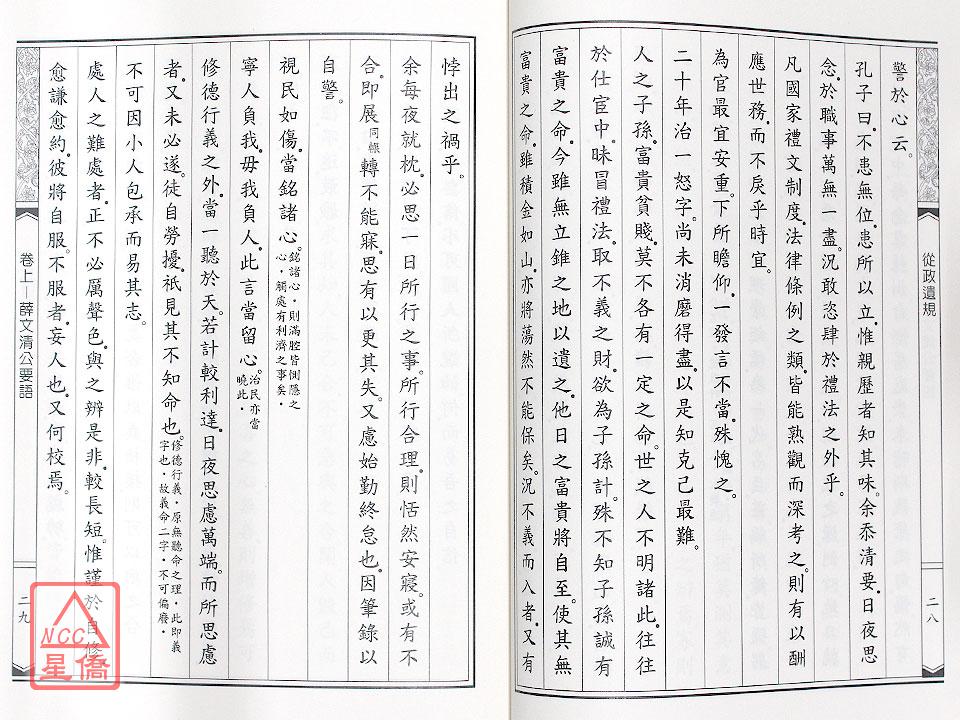 從政遺規
二八
警於心云。
孔子曰。不患無位。患所以立。惟親歷者知其味。余忝清要。日夜思
念。於職事萬無一盡。況敢恣肆於禮法之外乎。
凡國家禮文制度。法律條例之類。皆能熟觀而深考之。則有以酬
應世務。而不戾乎時宜。
為官最宜安重。下所瞻仰。一發言不當。殊愧之。
二十年治一怒字。尚未消磨得盡。以是知克己最難。
人之子孫。富貴貧賤。莫不各有一定之命。世之人不明諸此。往往
於仕宦中。昧冒禮法。取不義之財。欲為子孫計。殊不知子孫誠有
富貴之命。今雖無立錐之地以遺之。他日之富貴將自至。使其無
富貴之命。雖積金如山。亦將蕩然不能保矣。況不義而入者。又有
悖出之禍乎。
余每夜就枕。必思一日所行之事。所行合理。則恬然安寢。或有不
合。即展同輾轉不能寐。思有以更其失。又慮始勤終怠也。因筆錄以
自警。
視民如傷。當銘諸心。銘諸心，則滿腔皆惻隱之心，觸處有利濟之事矣。
寧人負我。毋我負人。此言當留心。治民亦當曉此。
修德行義之外。當一聽於天。若計較利達。日夜思慮萬端。而所思慮
者。又未必遂。徒自勞擾。祇見其不知命也。修德行義，原無聽命之理，此即義字也，故義命二字，不可偏廢。
不可因小人包承而易其志。
處人之難處者。正不必厲聲色。與之辨是非。較長短。惟謹於自修。
愈謙愈約。彼將自服。不服者。妄人也。又何校焉。
卷上—薛文清公要語
二九
NCC
星僑